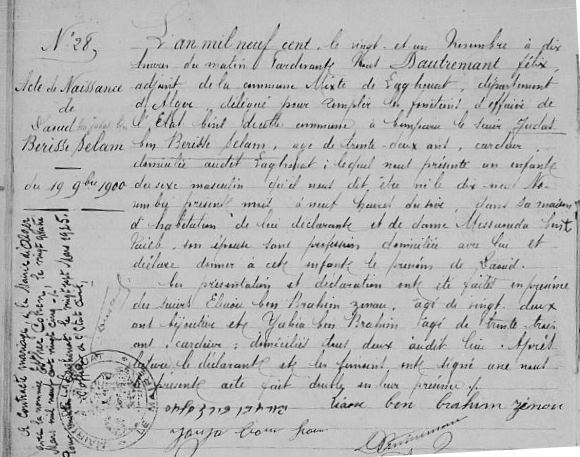 N° 28
Acte de Naissance
de
Daoud
Berisse Selam
du 19 9bre 1900
L'an mil neuf cent, le vingt et un Novembre à dix
heures du matin, devant Nous Dautremant félix,
adjoint de la commune Mixte de Laghouat, département
d'Alger, délégué pour remplir les fonctions d'officier de
l'Etat Civil de cette commune a comparu le sieur Judas
ben Berisse Selam, age de trente deux ans, cardeur
domicilié audit Laghouat ; lequel nous présente un enfant
du sexe masculin qu'il nous dit être né le dix neuf No-
vembre présent mois à neuf heures du soir, dans sa maison
d'habitation de lui déclarant et de dame Messaouda bent
son épouse sans profession domiciliée avec lui et
déclare donner à cet enfant le prénom de Daoud.
Les présentation et déclaration ont été faites en présence
des sieurs Eliaou ben Brahim Zenou, agé de vingt deux
ans bijoutier et Yahia ben Brahim agé de trente trois
ans cardeur ; domiciliés tous deux audit lieu. Après
lecture le déclarant et les témoins ont signé avec nous
le présent acte fait double en leur présence ./.
liaou ben brahim zenou
A contracté mariage à la Mairie d'Alger
avec la nommée Cohen, le vingt quatre
Mars mil neuf cent vingt cinq
Laghouat le vingt sept Mars 1925.
l'officier de l'état civil,
LE MAIRE